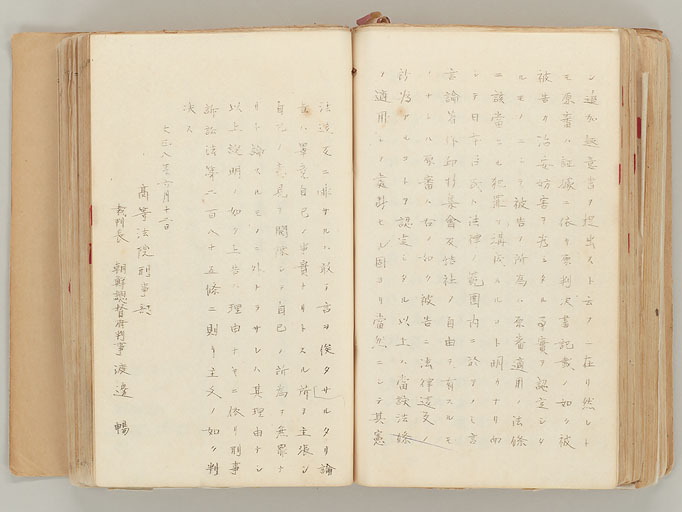 シ追加趣意書ヲ提出スト云フニ在リ然レト
モ原審ハ証據ニ依リ原判決書記載ノ如ク被
被告カ治安妨害ヲ為シタル事實ヲ認定シタ
ルモノニシテ被告ノ所為ハ原審適用ノ法條
ニ該當シ犯罪ヲ構成スルコト明カナリ而
シテ日本臣民ハ法律ノ範囲内ニ於テノミ言
言論著作印行集會及結社ノ自由ヲ有スルモ
ノナレハ原審ハ右ノ如ク被告ニ法律違反ノ
行為アルコトヲ認定シタル以上ハ當該法條
ヲ適用シテ處罰シタルハ固ヨリ當然ニシテ其憲
法違反ニ非サルハ敢テ言ヲ俟タサルタリ論
旨ハ畢竟自己ノ事實ナリトスル所ヲ主張シ
自己ノ意見ヲ開陳シテ自己ノ所為ヲ無罪ナ
リト論スルモノニ外ナラサレハ其理由ナシ
以上説明ノ如ク上告ハ理由ナキニ依リ刑事
訴訟法第二百八十五條ニ則リ主文ノ如ク判
決ス
大正八年 月十二日
高等法院刑事部
裁判長 朝鮮總督府判事 渡邊 暢